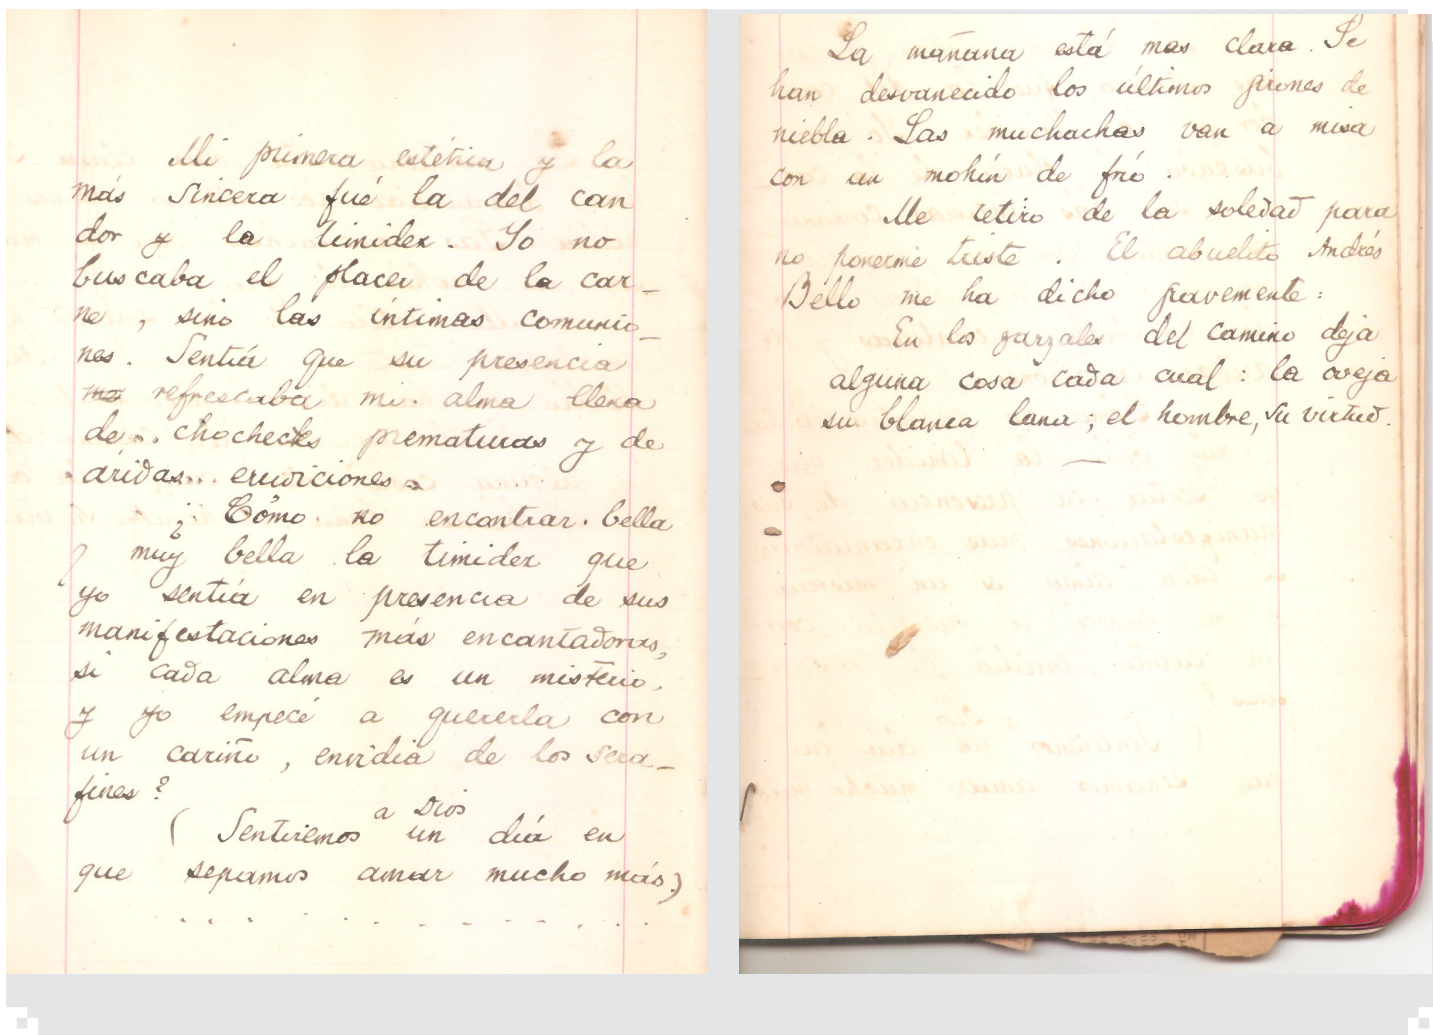 Mi primera estética y la
más sincera fué la del can
dor y la timidez. Yo no
buscaba el placer de la car-
ne, sino las íntimas comunio-
nes. Sentía que su presencia
refrescaba mi alma llena
de.. chocheces prematuras y de
áridas... erudiciones
¿Cómo no encontrar bella
y muy bella la timidez que
yo sentía en presencia de sus
manifestaciones más encantadoras,
si cada alma es un misterio,
y yo empecé a quererla con
un cariño, envidia de los sera-
fines?
a Dios
(Sentiremos un día en
que sepamos amar mucho más.)
. . . . . . . . . . . .
La mañana está mas clara. Se
han desvanecido los últimos girones de
niebla. Las muchachas van a misa
con un mohín de frío.
Me retiro de la soledad para
no ponerme triste. El abuelito Andrés
Bello me ha dicho gravemente:
En los zarzales del camino deja
alguna cosa cada cual: la oveja
su blanca lana; el hombre, su virtud.